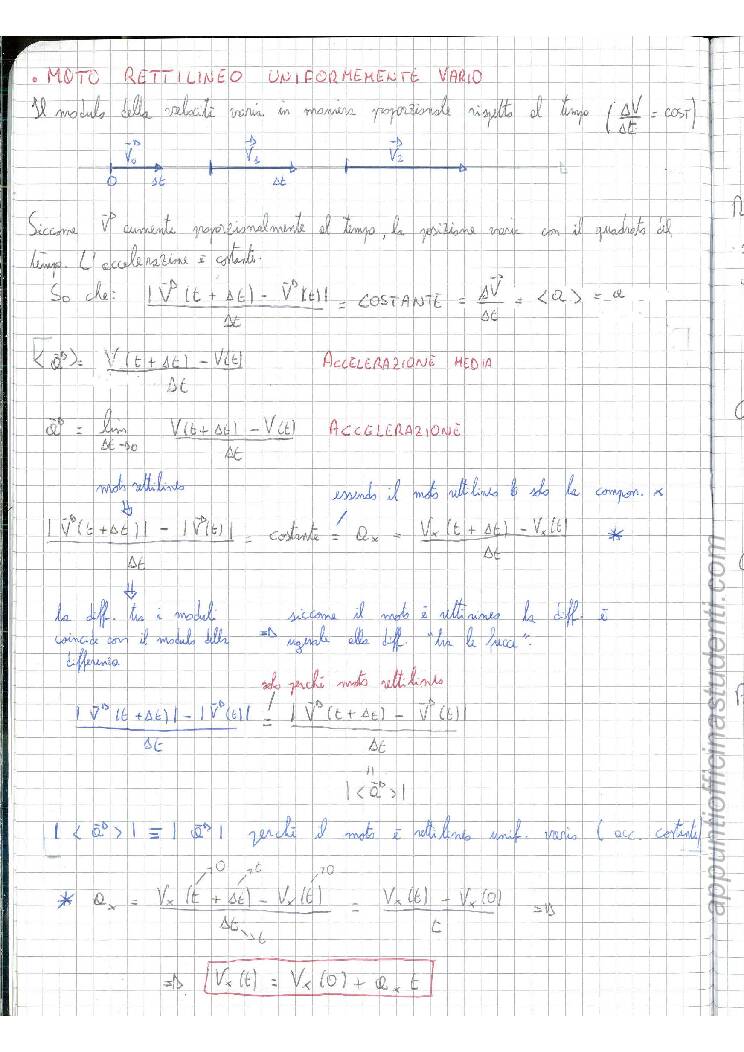 • MOTO RETTILINEO UNIFORMEMENTE VARIO
Il modulo della velocità varia in maniera proporzionale rispetto al tempo (ΔV/Δt = COST)
V⃗₀ V⃗₁ V⃗₂
0 Δt Δt
Siccome V⃗ aumenta proporzionalmente al tempo, la posizione varia con il quadrato del
tempo. L'accelerazione è costante.
So che: |V⃗(t + Δt) - V⃗(t)| / Δt = COSTANTE = ΔV⃗/Δt = <a> = a
<a⃗> = V(t + Δt) - V(t) / Δt ACCELERAZIONE MEDIA
a⃗ = lim Δt→0 V(t+Δt) - V(t) / Δt ACCELERAZIONE
moto rettilineo
essendo il moto rettilineo solo la compon. x
|V⃗(t+Δt)| - |V⃗(t)| / Δt = costante = ax = Vx(t + Δt) - Vx(t) / Δt *
la diff. tra i moduli ⇒ siccome il moto è rettilineo la diff. è
coincide con il modulo della uguale alla diff. "tra le frecce".
differenza
solo perché moto rettilineo
|V⃗(t+Δt)| - |V⃗(t)| / Δt = |V⃗(t+Δt) - V⃗(t)| / Δt
=
|<a⃗>|
|<a⃗>| ≡ |a⃗| perché il moto è rettilineo unif. vario (acc. costante)
→0 →t →0
* ax = Vx(t + Δt) - Vx(t) / Δt = Vx(t) - Vx(0) / t ⇒
→t
⇒ Vx(t) = Vx(0) + ax t
appuntiofficinastudenti.com